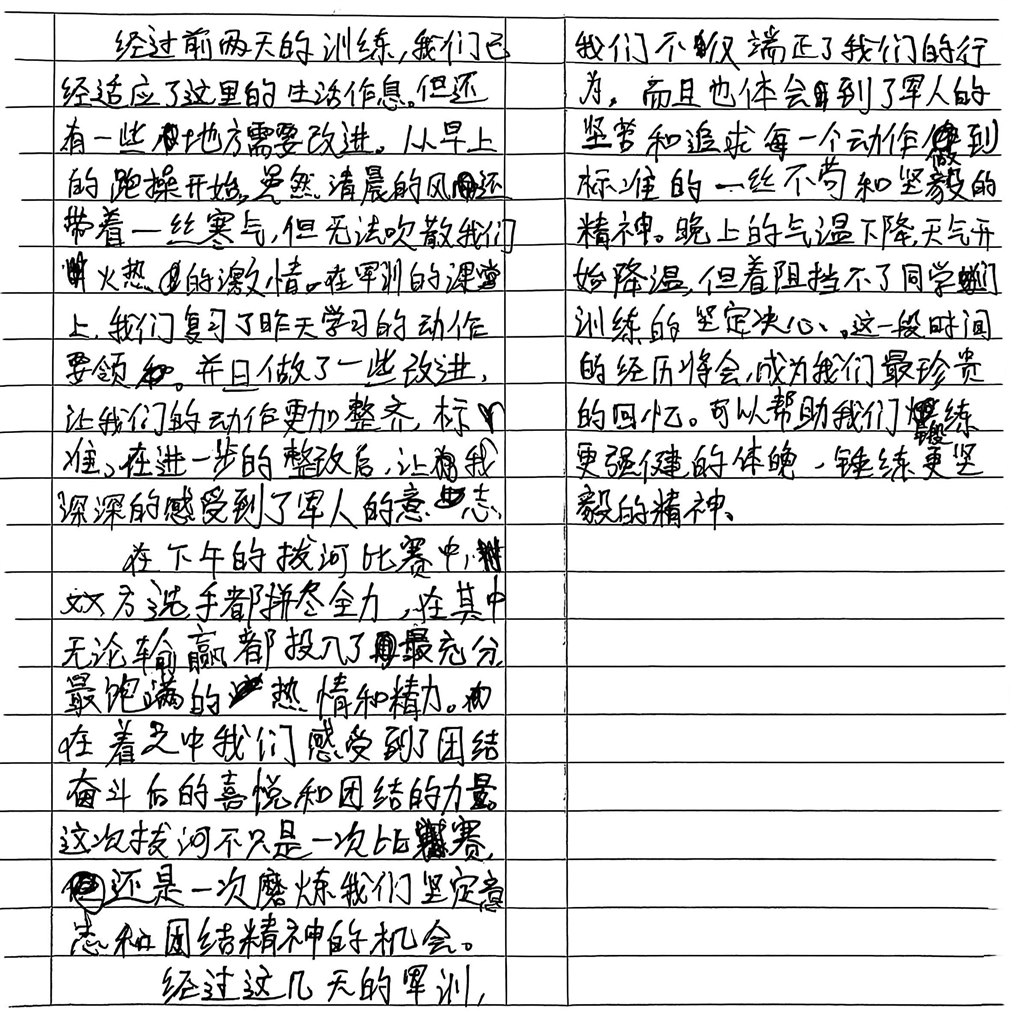 经过前两天的训练,我们已
经适应了这里的生活作息。但还
有一些地方需要改进。从早上
的跑操开始。虽然清晨的风还
带着一丝寒气,但无法吹散我们
火热的激情。在军训的课堂
上,我们复习了昨天学习的动作
要领。并且做了一些改进,
让我们的动作更加整齐,标
准。在进一步的整改后,让我
深深的感受到了军人的意志。
在下午的拔河比赛中,
双方选手都拼尽全力,在其中
无论输赢都投入了最充分
最饱满的热情和精力。
在着之中我们感受到了团结
奋斗后的喜悦和团结的力量。
这次拔河不只是一次比赛,
还是一次磨炼我们坚定意
志和团结精神的机会。
经过这几天的军训,
我们不仅端正了我们的行
为。而且也体会到了军人的
坚苦和追求每一个动作做到
标准的一丝不苟和坚毅的
精神。晚上的气温下降,天气开
始降温,但着阻挡不了同学们
训练的坚定决心。这一段时间
的经历将会,成为我们最珍贵
的回忆。可以帮助我们锻练
更强健的体魄,锤练更坚
毅的精神。